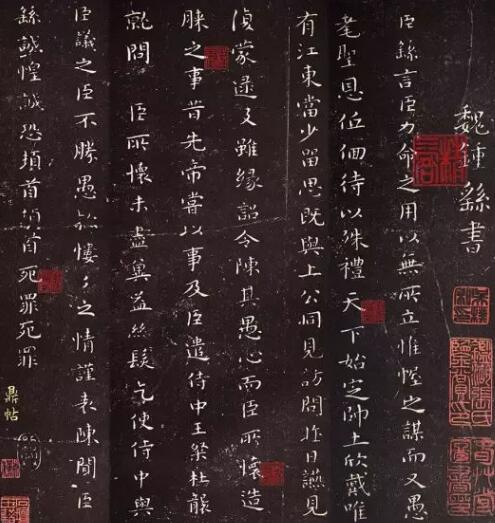 魏鍾繇書
臣繇言臣力命之用以無所立惟幄之謀而又愚
耄聖恩低佪待以殊禮 天下始定帥土欣戴唯
有江東當少留思既與上公同見訪問昨日讌見
復蒙逮及雖緣詔令陳其愚心而臣所懷造
膝之事昔先帝嘗以事及臣遣侍中王粲杜襲
就問 臣所懷未盡冀益絲髮乞使侍中與
臣議之臣不勝愚款慺々之情謹表陳聞 臣
繇誠惶誠恐頓首頓首死罪死罪
鼎帖